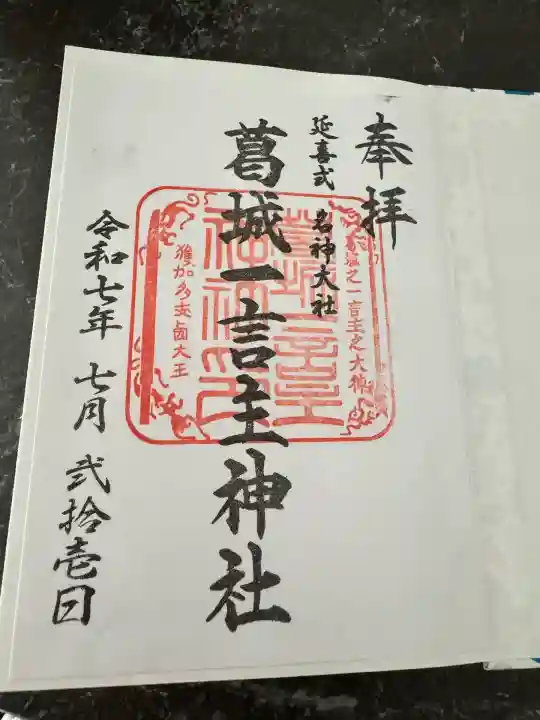 奉拝
延喜式 名神大社
葛城之一言主之大神
葛城一言主神社
獲加多支鹵大王
令和七年 七月 弐拾壱日